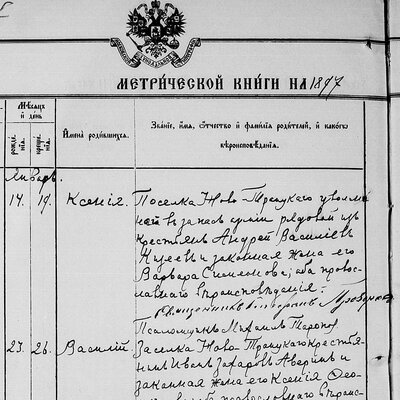 МЕТРИЧЕСКОЙ КНИГИ НА 1897
Мѣсяцъ и день
рожденія. крещенія.
Имена родившихся.
Званіе, имя, отчество и фамилія родителей, и какого вѣроисповѣданія.
Январь.
14. 19. Ксенія. Поселка Ново-Троицкаго уволен
ной въ запасъ арміи рядовой изъ
крестьянъ Андрей Василіевъ
и законная жена его
Варвара Симеонова, оба право
славнаго вѣроисповѣданія.
Псаломщикъ Михаилъ
23. 26. Василій. Заселка Ново-Троицкаго кресть
нинъ Иванъ Захаровъ Аверинъ и
законная жена его Ксенія Ѳео
православнаго вѣроис